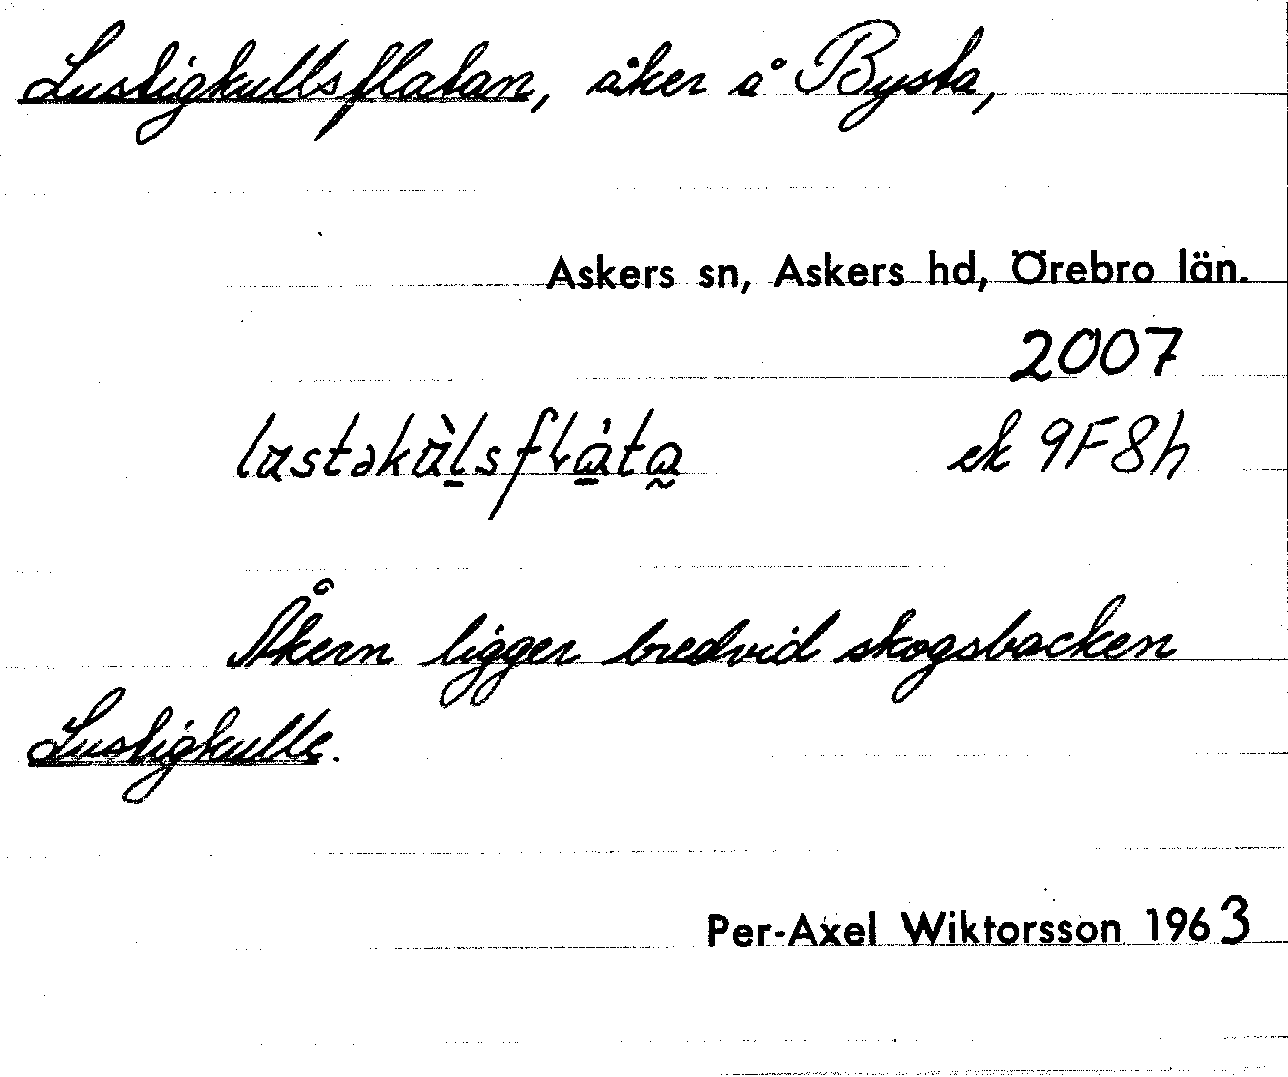 Lustigkullsflatan, åker å Bysta,
Askers sn, Askers hd, Örebro län.
2007
ek 9F8h
Åkern ligger bredvid skogsbacken
Lustigkulle.
Per-Axel Wiktorsson 1963